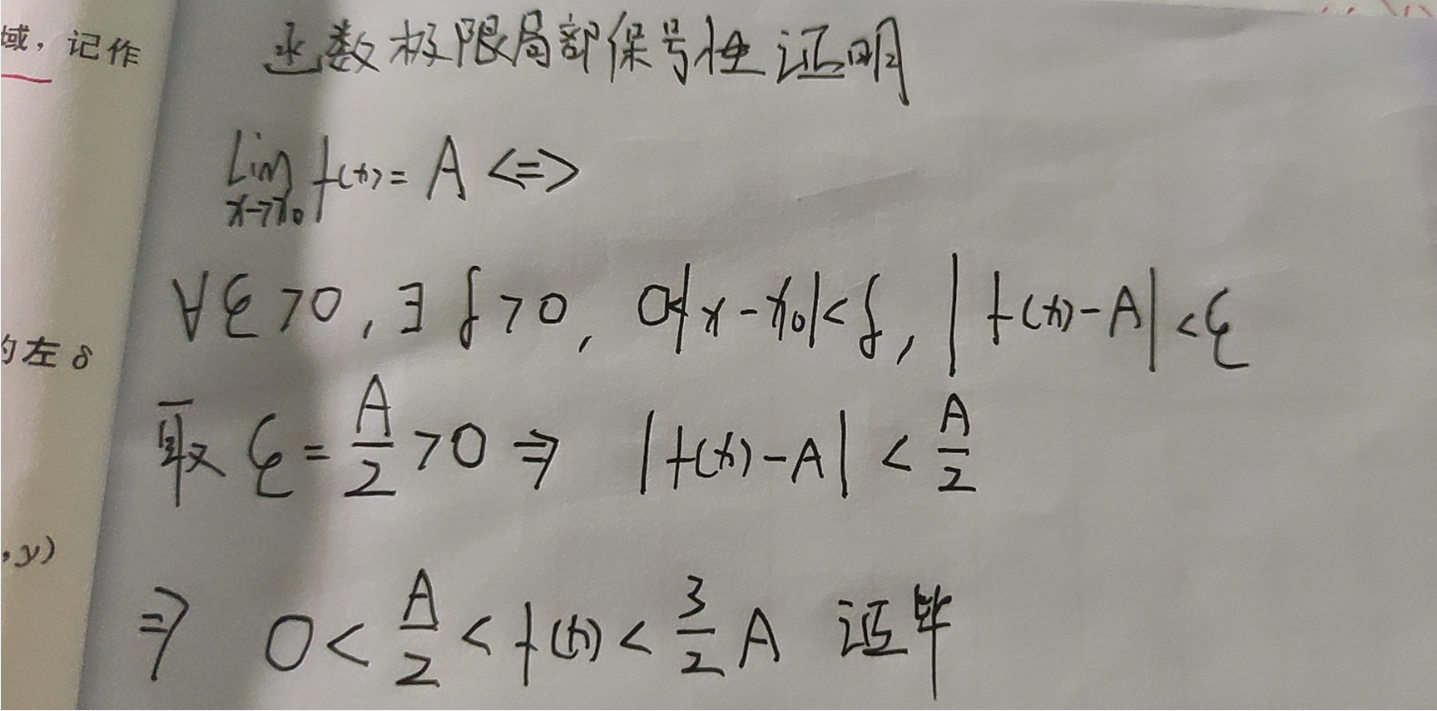 域，记作
函数极限局部保号性证明
lim f(x) = A <=>
x→x₀
∀ε>0, ∃δ>0, 0<|x-x₀|<δ, |f(x)-A|<ε
的左δ
取ε=A/2>0 ⇒ |f(x)-A| < A/2
,y)
⇒ 0 < A/2 < f(x) < 3/2 A 证毕